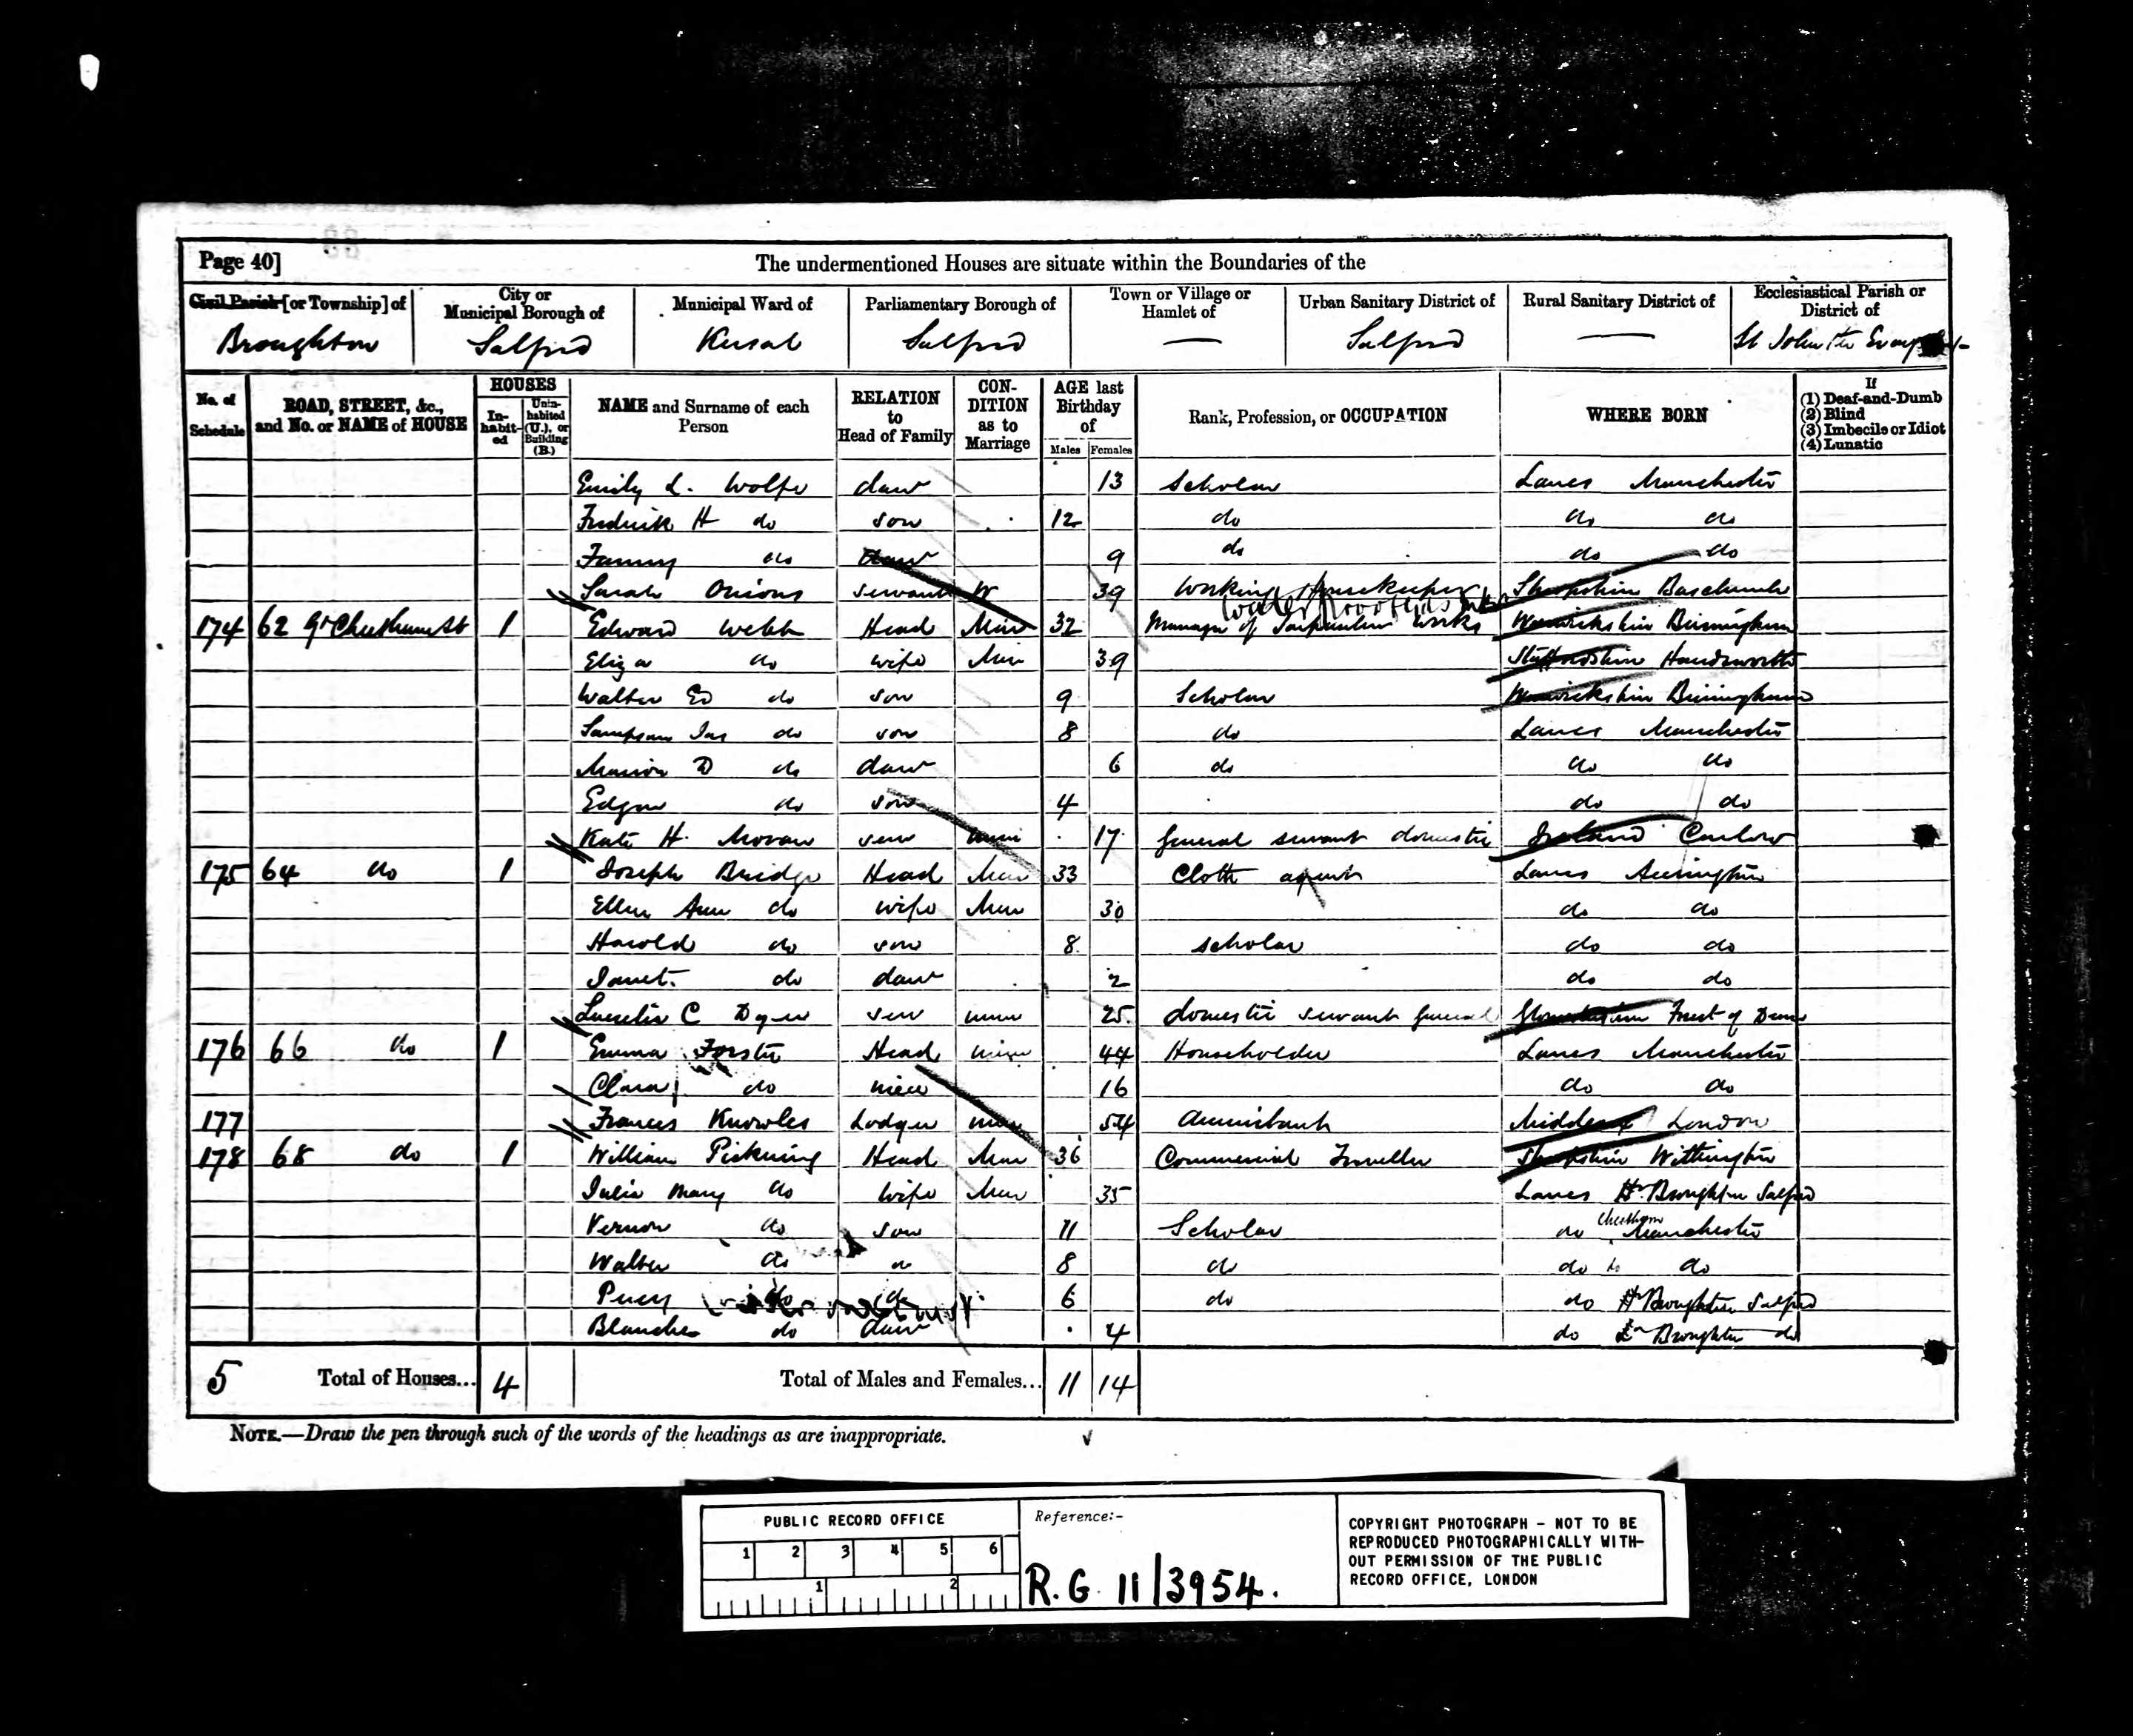 Page 40]
The undermentioned Houses are situate within the Boundaries of the
Civil Parish [or Township] of
City or Municipal Borough of
Municipal Ward of
Parliamentary Borough of
Town or Village or Hamlet of
Urban Sanitary District of
Rural Sanitary District of
Ecclesiastical Parish or District of
Broughton Salford Kersal Salford — Salford — St John the
No. of Schedule
ROAD, STREET, &c., and No. or NAME of HOUSE
HOUSES
Inhabited
Uninhabited (U.), or Building (B.)
NAME and Surname of each Person
RELATION to Head of Family
CONDITION as to Marriage
AGE last Birthday of
Males Females
Rank, Profession, or OCCUPATION
WHERE BORN
If
(1) Deaf-and-Dumb
(2) Blind
(3) Imbecile or Idiot
(4) Lunatic
Emily L. Wolfe daur 13 Scholar Lancs Manchester
Fredrick H do son 12 do do do
Fanny do daur 9 do do do
Sarah Onions servant W 39 Working Housekeeper Shropshire Baschurch
174 62 Gt Cheetham St 1 Edward Webb Head Mar 32 Manager of Tarpaulin Works Warwickshire Birmingham
Eliza do wife Mar 39 Staffordshire Handsworth
Walter Ed do son 9 Scholar Warwickshire Birmingham
Sampson Jas do son 8 do Lancs Manchester
Marion D do daur 6 do do do
Edgar do son 4 do do
Kate H. Moran serv unm 17 General servant domestic Ireland Carlow
175 64 do 1 Joseph Bridge Head Mar 33 Cloth agent Lancs Accrington
Ellen Ann do wife Mar 30 do do
Harold do son 8 scholar do do
Janet do daur 2 do do
C Dyer serv unm 25 domestic servant general Gloucestershire Forest of Dean
176 66 do 1 Emma Forster Head unm 44 Householder Lancs Manchester
Clara do niece 16 do do
177 Frances Knowles Lodger 54 Annuitant Middlesex London
178 68 do 1 William Pickering Head Mar 36 Commercial Traveller Shropshire Withington
Julia Mary do wife Mar 35 Lancs Hr Broughton Salford
Vernon do son 11 Scholar do Cheetham Manchester
Walter do do 8 do do do do
Percy do do 6 do do Hr Broughton Salford
Blanche do daur 4 do Lr Broughton do
5 Total of Houses... 4 Total of Males and Females... 11 14
NOTE.—Draw the pen through such of the words of the headings as are inappropriate.
PUBLIC RECORD OFFICE
1 2 3 4 5 6
1 2
Reference:-
R.G. 11/3954.
COPYRIGHT PHOTOGRAPH - NOT TO BE
REPRODUCED PHOTOGRAPHICALLY WITH-
OUT PERMISSION OF THE PUBLIC
RECORD OFFICE, LONDON